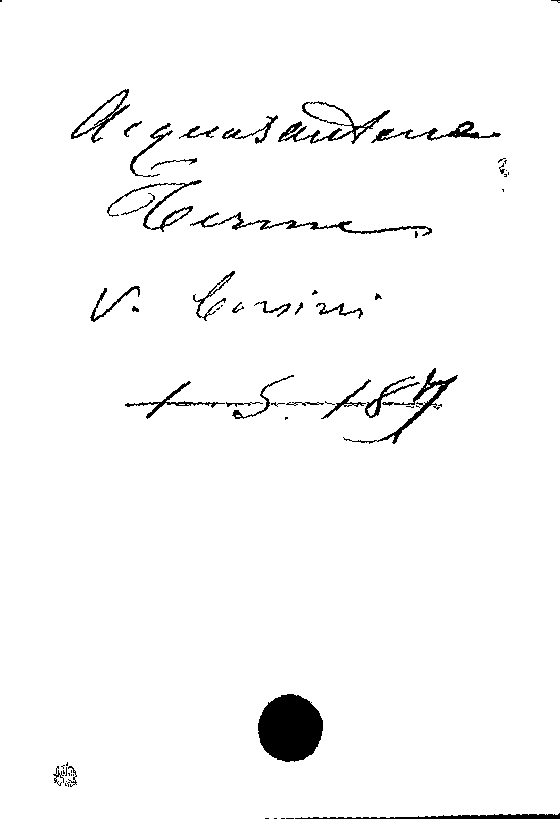 Acquasantene
Terme
V. Corsini
1. 5. 187